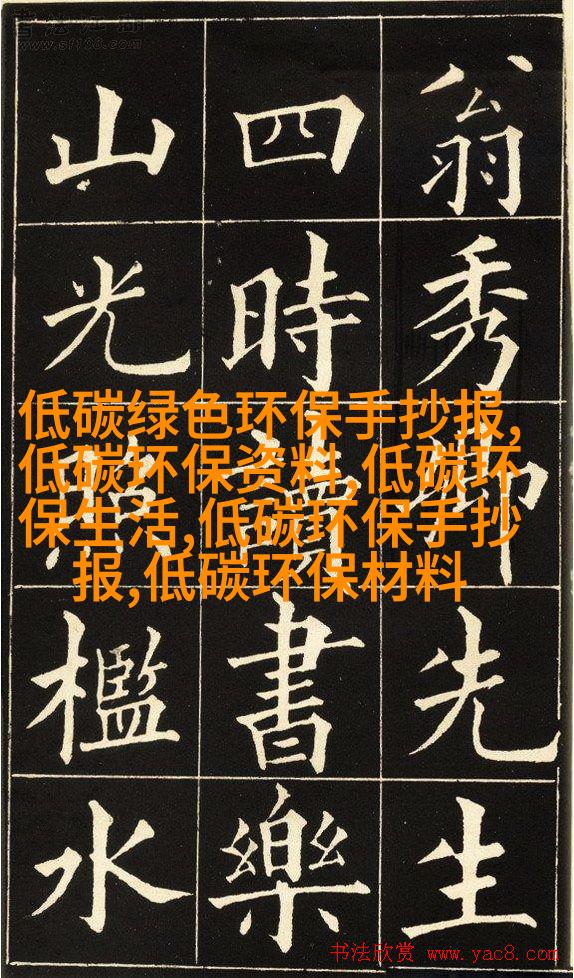 www.sf108.com
翁秀卿先生
四時讀書樂
山光照檻水
低碳绿色环保手抄报,
低碳环保资料,低碳环
保生活,低碳环保手抄
报,低碳环保材料
书法欣赏 www.yac8.com